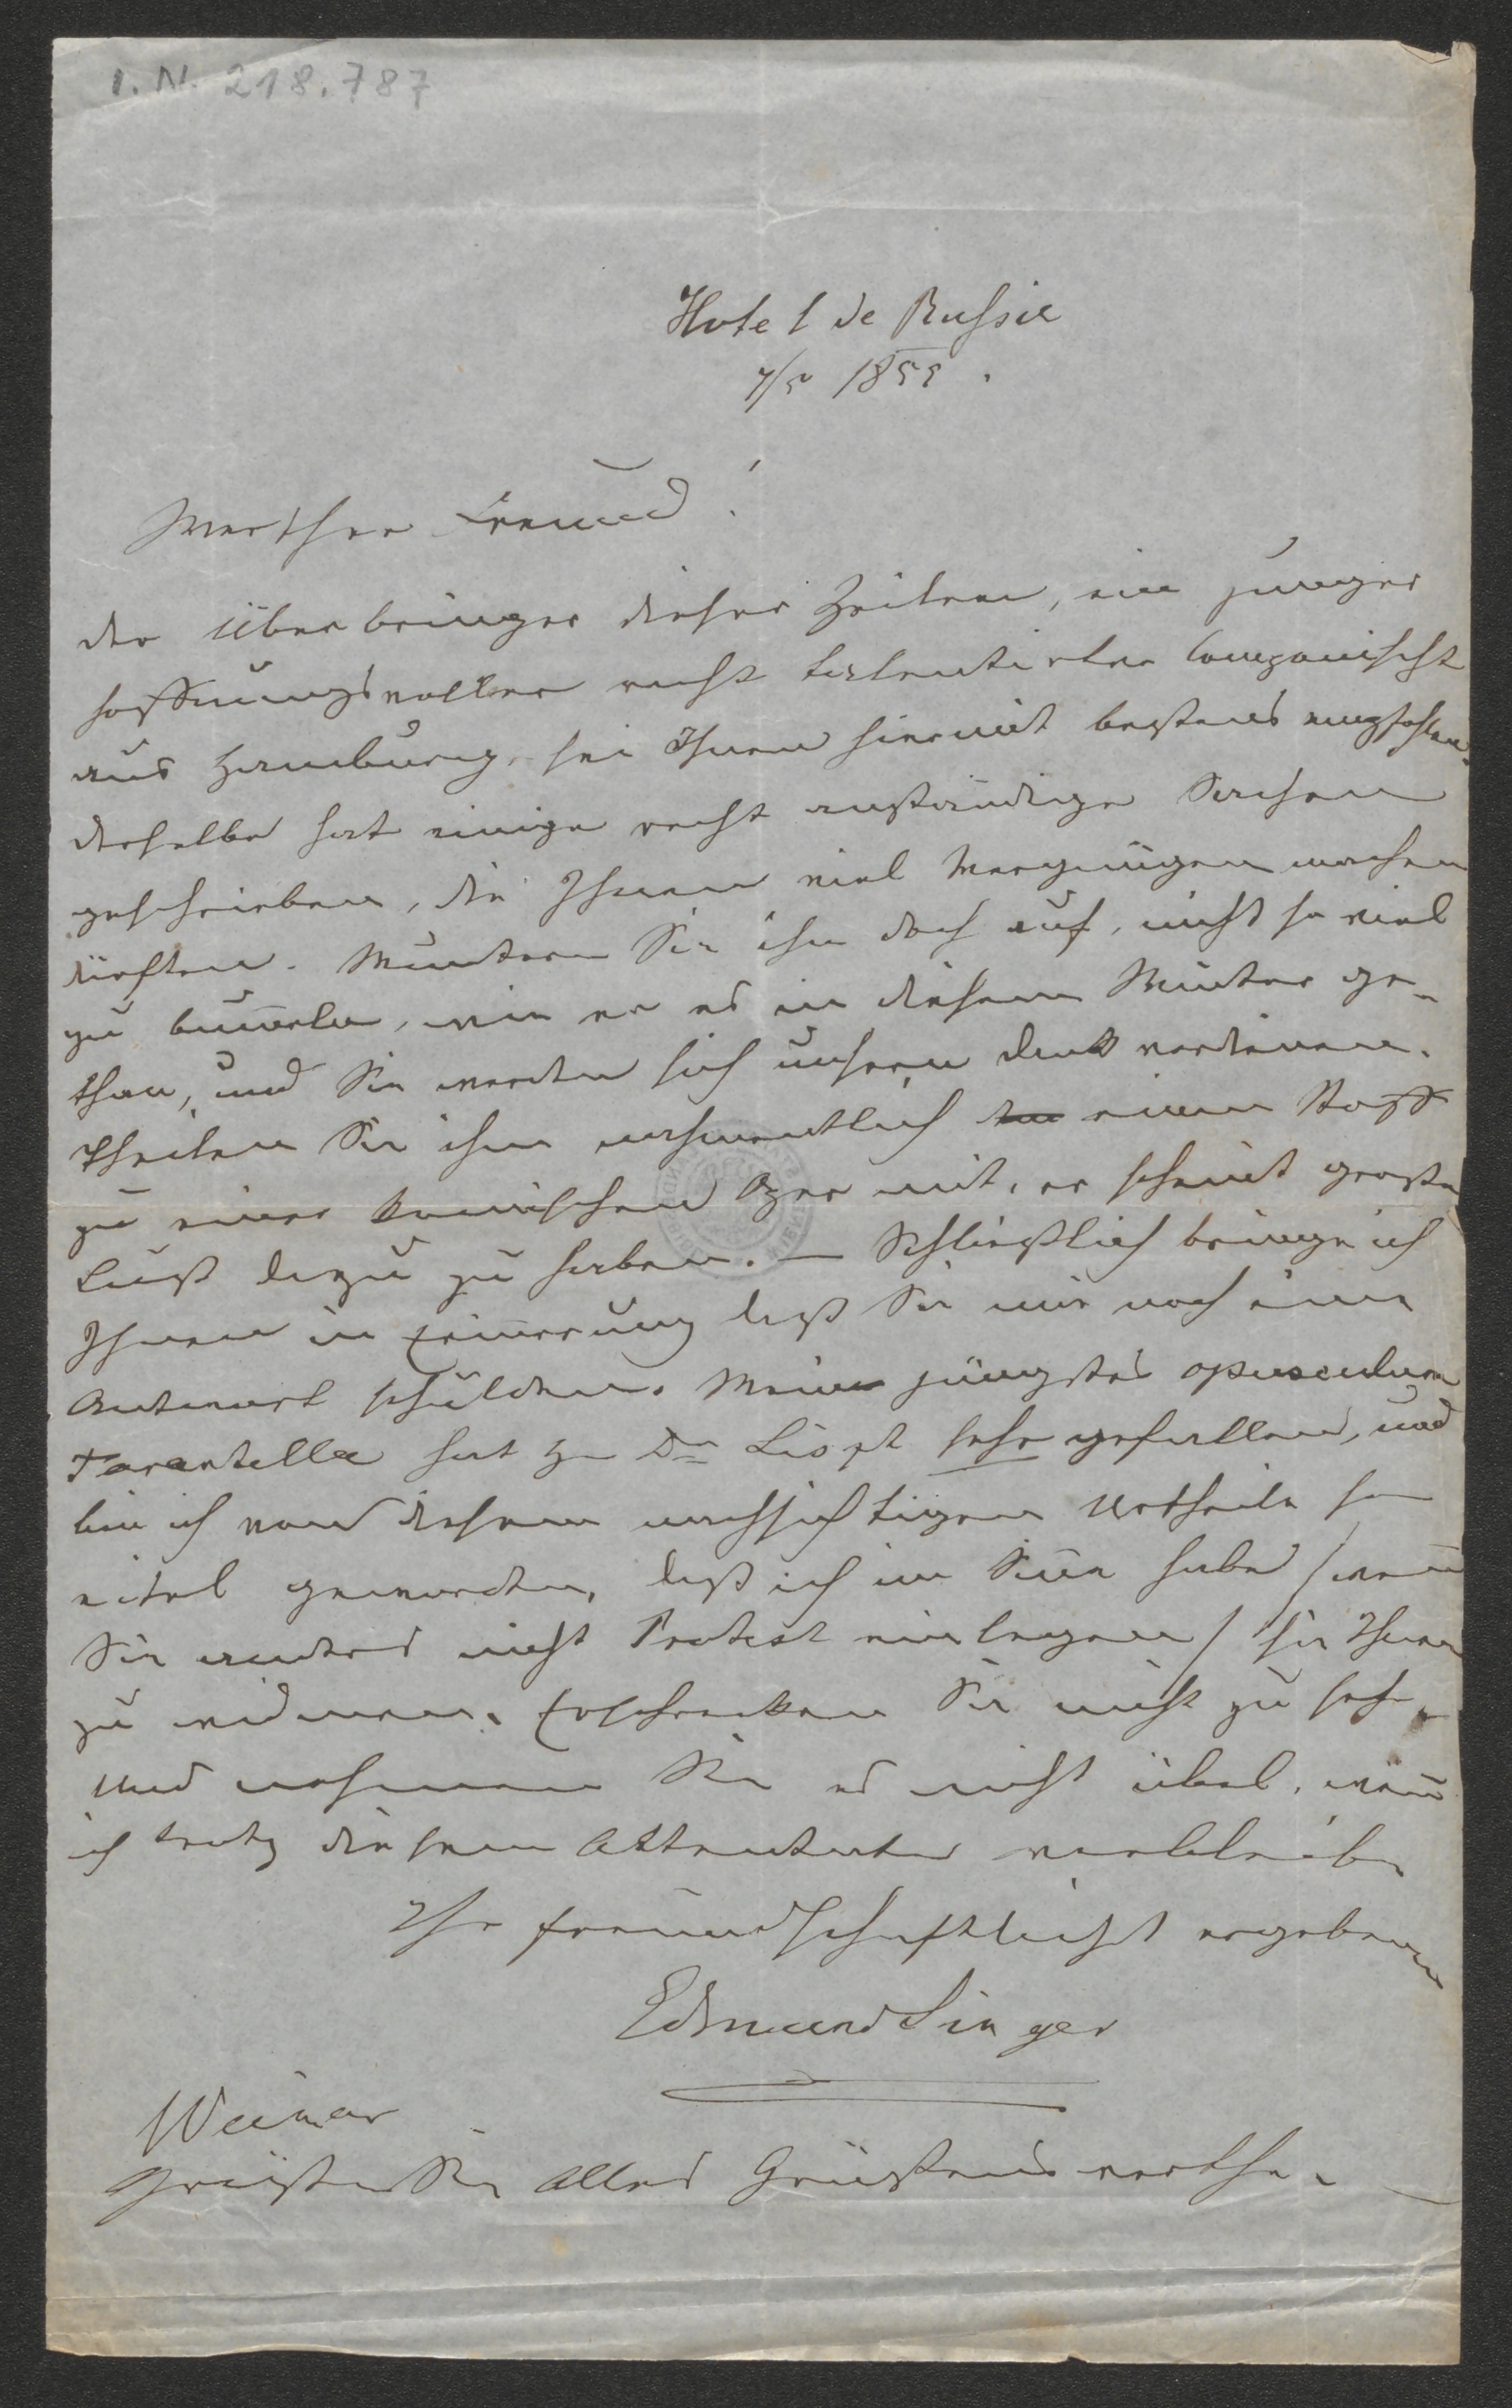 I.N. 218.787
Hotel de Russie
7/5 1855.
Werther Freund!
der Überbringer dieser Zeilen, ein junger
hoffnungsvoller recht talentirter Componischt
aus Hamburg, sei Ihnen hiermit bestens empfohlen.
derselbe hat einige recht anständige Sachen
geschrieben, die Ihnen viel Vergnügen machen
dürften. Muntern Sie ihn doch auf, nicht so viel
zu bum̄eln, wie er es in diesem Winter ge-
than, und Sie werden sich unsern Dank verdienen.
Theilen Sie ihm nahmentlich einen Stoff
zu einer komischen Oper mit, er scheint große
Lust dazu zu haben. — Schließlich bringe ich
Ihnen in Erin̄erung daß Sie mir noch eine
Antwort schulden. Mein jüngstes opusculum
Tarantella hat H Dr Liszt sehr gefallen, und
bin ich von diesem nachsichtigen Urtheile so
eitel geworden, daß ich im Sinne habe / wen̄
Sie anders nicht Protest einlegen / sie Ihnen
zu widmen. Erschrecken Sie nicht zu sehr,
und nehmen Sie es nicht übel, wen̄
ich trotz diesem Attentate verbleibe
Ihr freundschaftlichst ergebener
Edmund Singer
Weimar
Grüßen Sie Alles Grüßenswerthe.